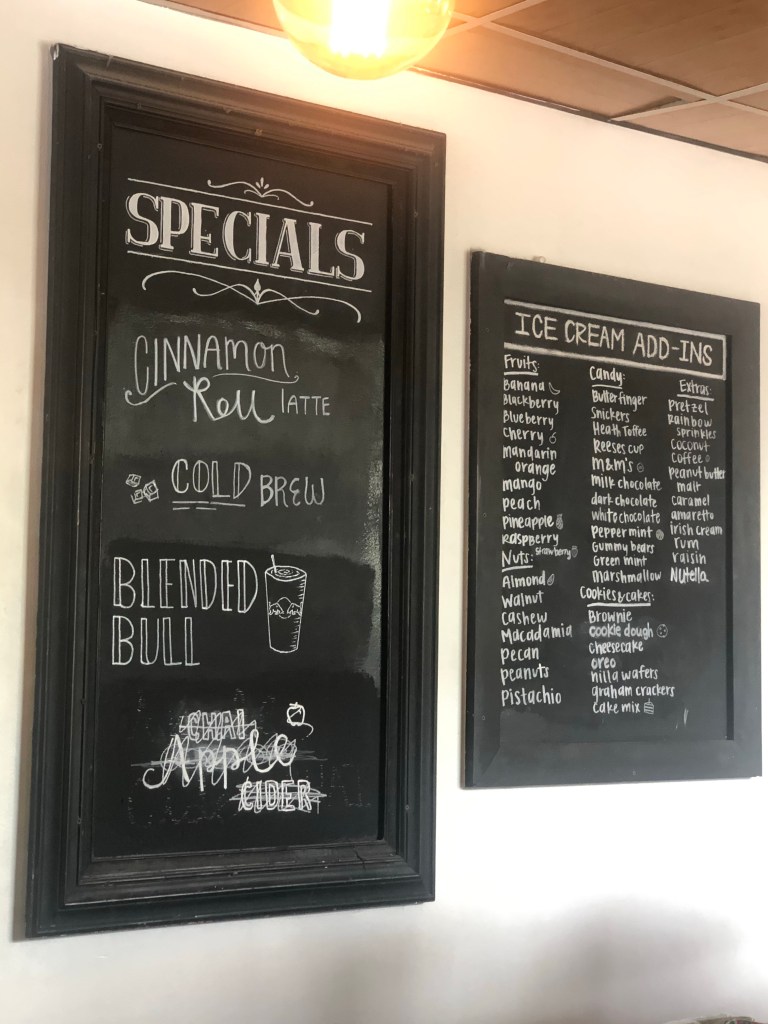 SPECIALS
CINNAMON
Roll LATTE
COLD BREW
BLENDED
BULL
CHAI
Apple
CIDER
ICE CREAM ADD-INS
Fruits:
Banana
Blackberry
Blueberry
Cherry
mandarin
orange
mango
peach
pineapple
Raspberry
Strawberry
Nuts:
Almond
Walnut
Cashew
Macadamia
pecan
peanuts
Pistachio
Candy:
Butterfinger
Snickers
Heath Toffee
Reeses cup
M&M's
milk chocolate
dark chocolate
white chocolate
Peppermint
Gummy bears
Green mint
marshmallow
Cookies & cakes:
Brownie
cookie dough
cheesecake
oreo
nilla wafers
graham crackers
cake mix
Extras:
Pretzel
Rainbow
sprinkles
Coconut
Coffee
peanut butter
malt
caramel
amaretto
irish cream
rum
raisin
Nutella